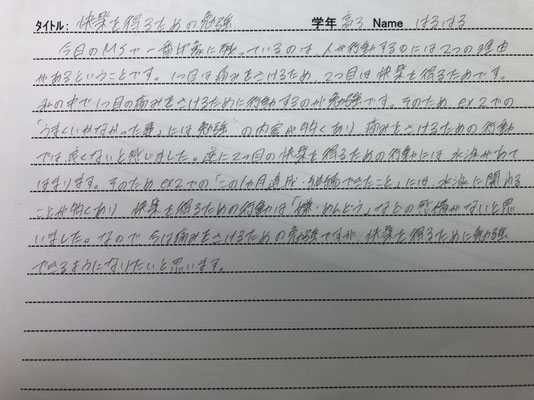 タイトル: 快楽を得るための勉強 学年 高3 Name はるはる
今日のMSで一番印象に残っているのは、人が行動するのには2つの理由
があるということです。1つ目は痛みをさけるため、2つ目は快楽を得るためです。
私の中で1つ目の痛みをさけるために行動するのが勉強です。そのため、ex2での
「うまくいかなかった事」には勉強の内容が多くあり、痛みをさけるための行動
では良くないと感じました。逆に2つ目の快楽を得るための行動には水泳があて
はまります。そのためex2での「この1カ月達成・継続できたこと」には水泳に関する
ことが多くあり、快楽を得るための行動は「嫌・めんどう」などの感情がないと思
いました。なので、今は痛みをさけるための勉強ですが、快楽を得るために勉強
できるようになりたいと思います。